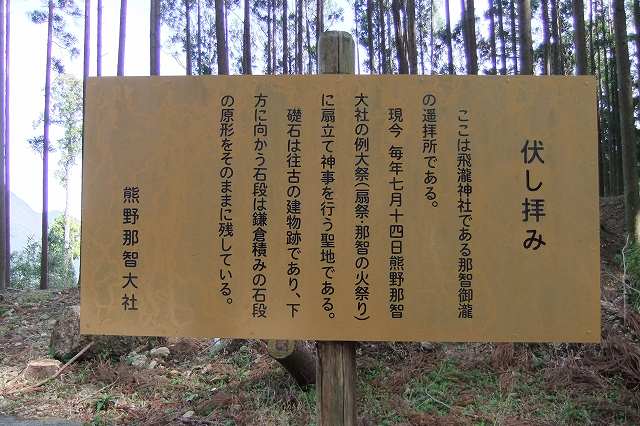 伏し拝み
ここは飛瀧神社である那智御瀧
の遥拝所である。
現今 毎年七月十四日熊野那智
大社の例大祭(扇祭・那智の火祭り)
に扇立て神事を行う聖地である。
礎石は往古の建物跡であり、下
方に向かう石段は鎌倉積みの石段
の原形をそのままに残している。
熊野那智大社